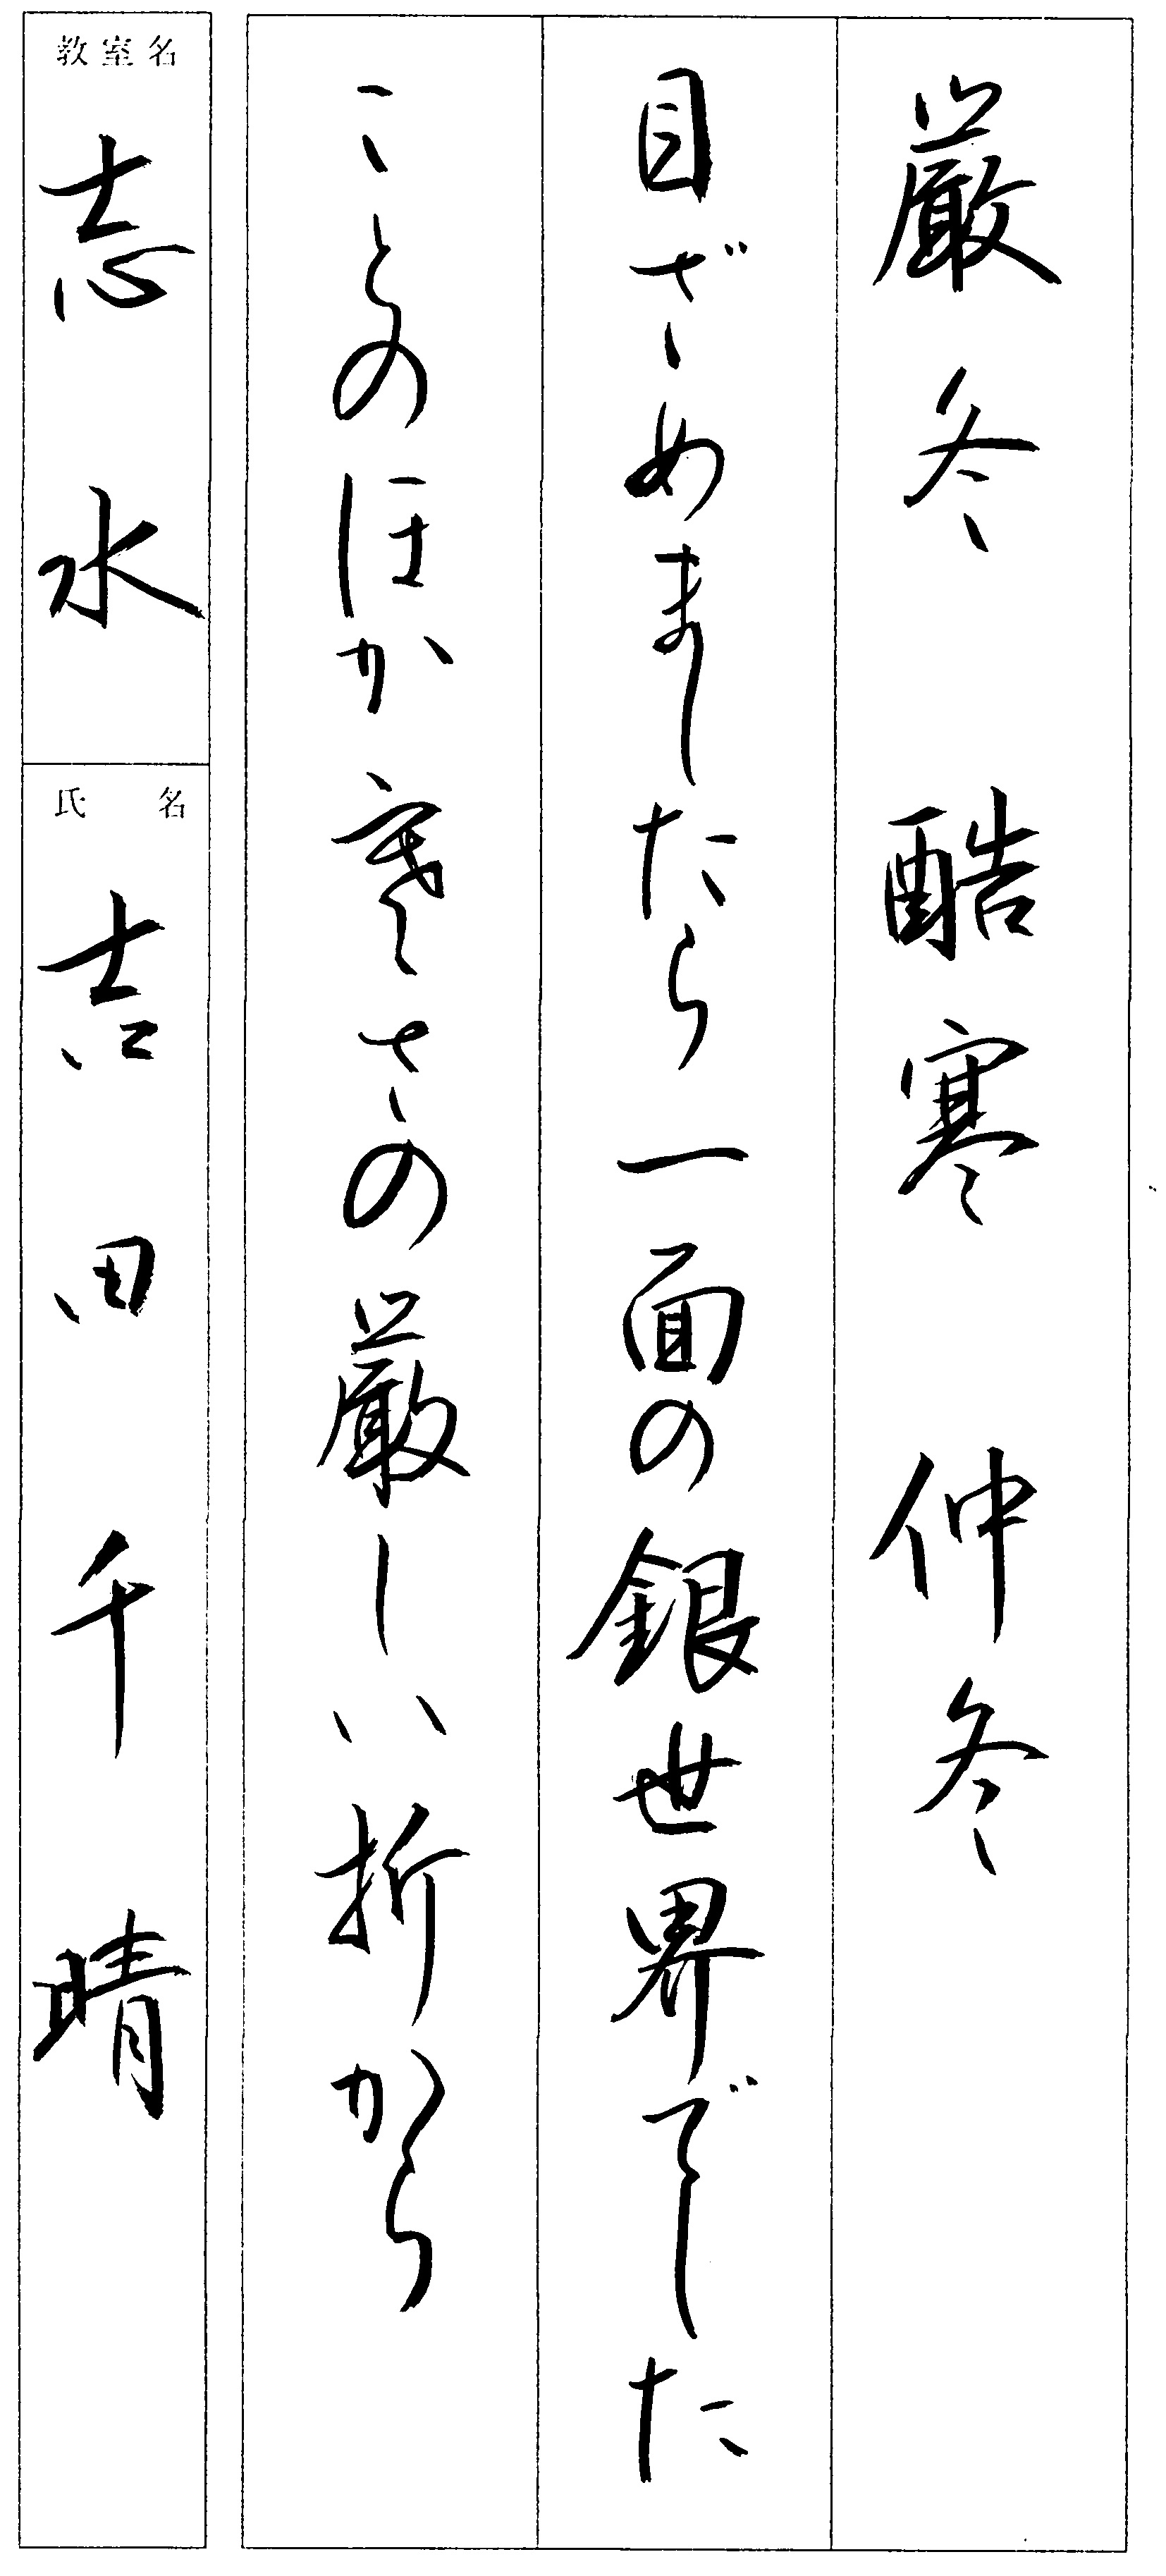 厳冬 酷寒 仲冬
目ざめましたら一面の銀世界でした
ことのほか寒さの厳しい折から
教室名
志水
氏名
吉田千晴